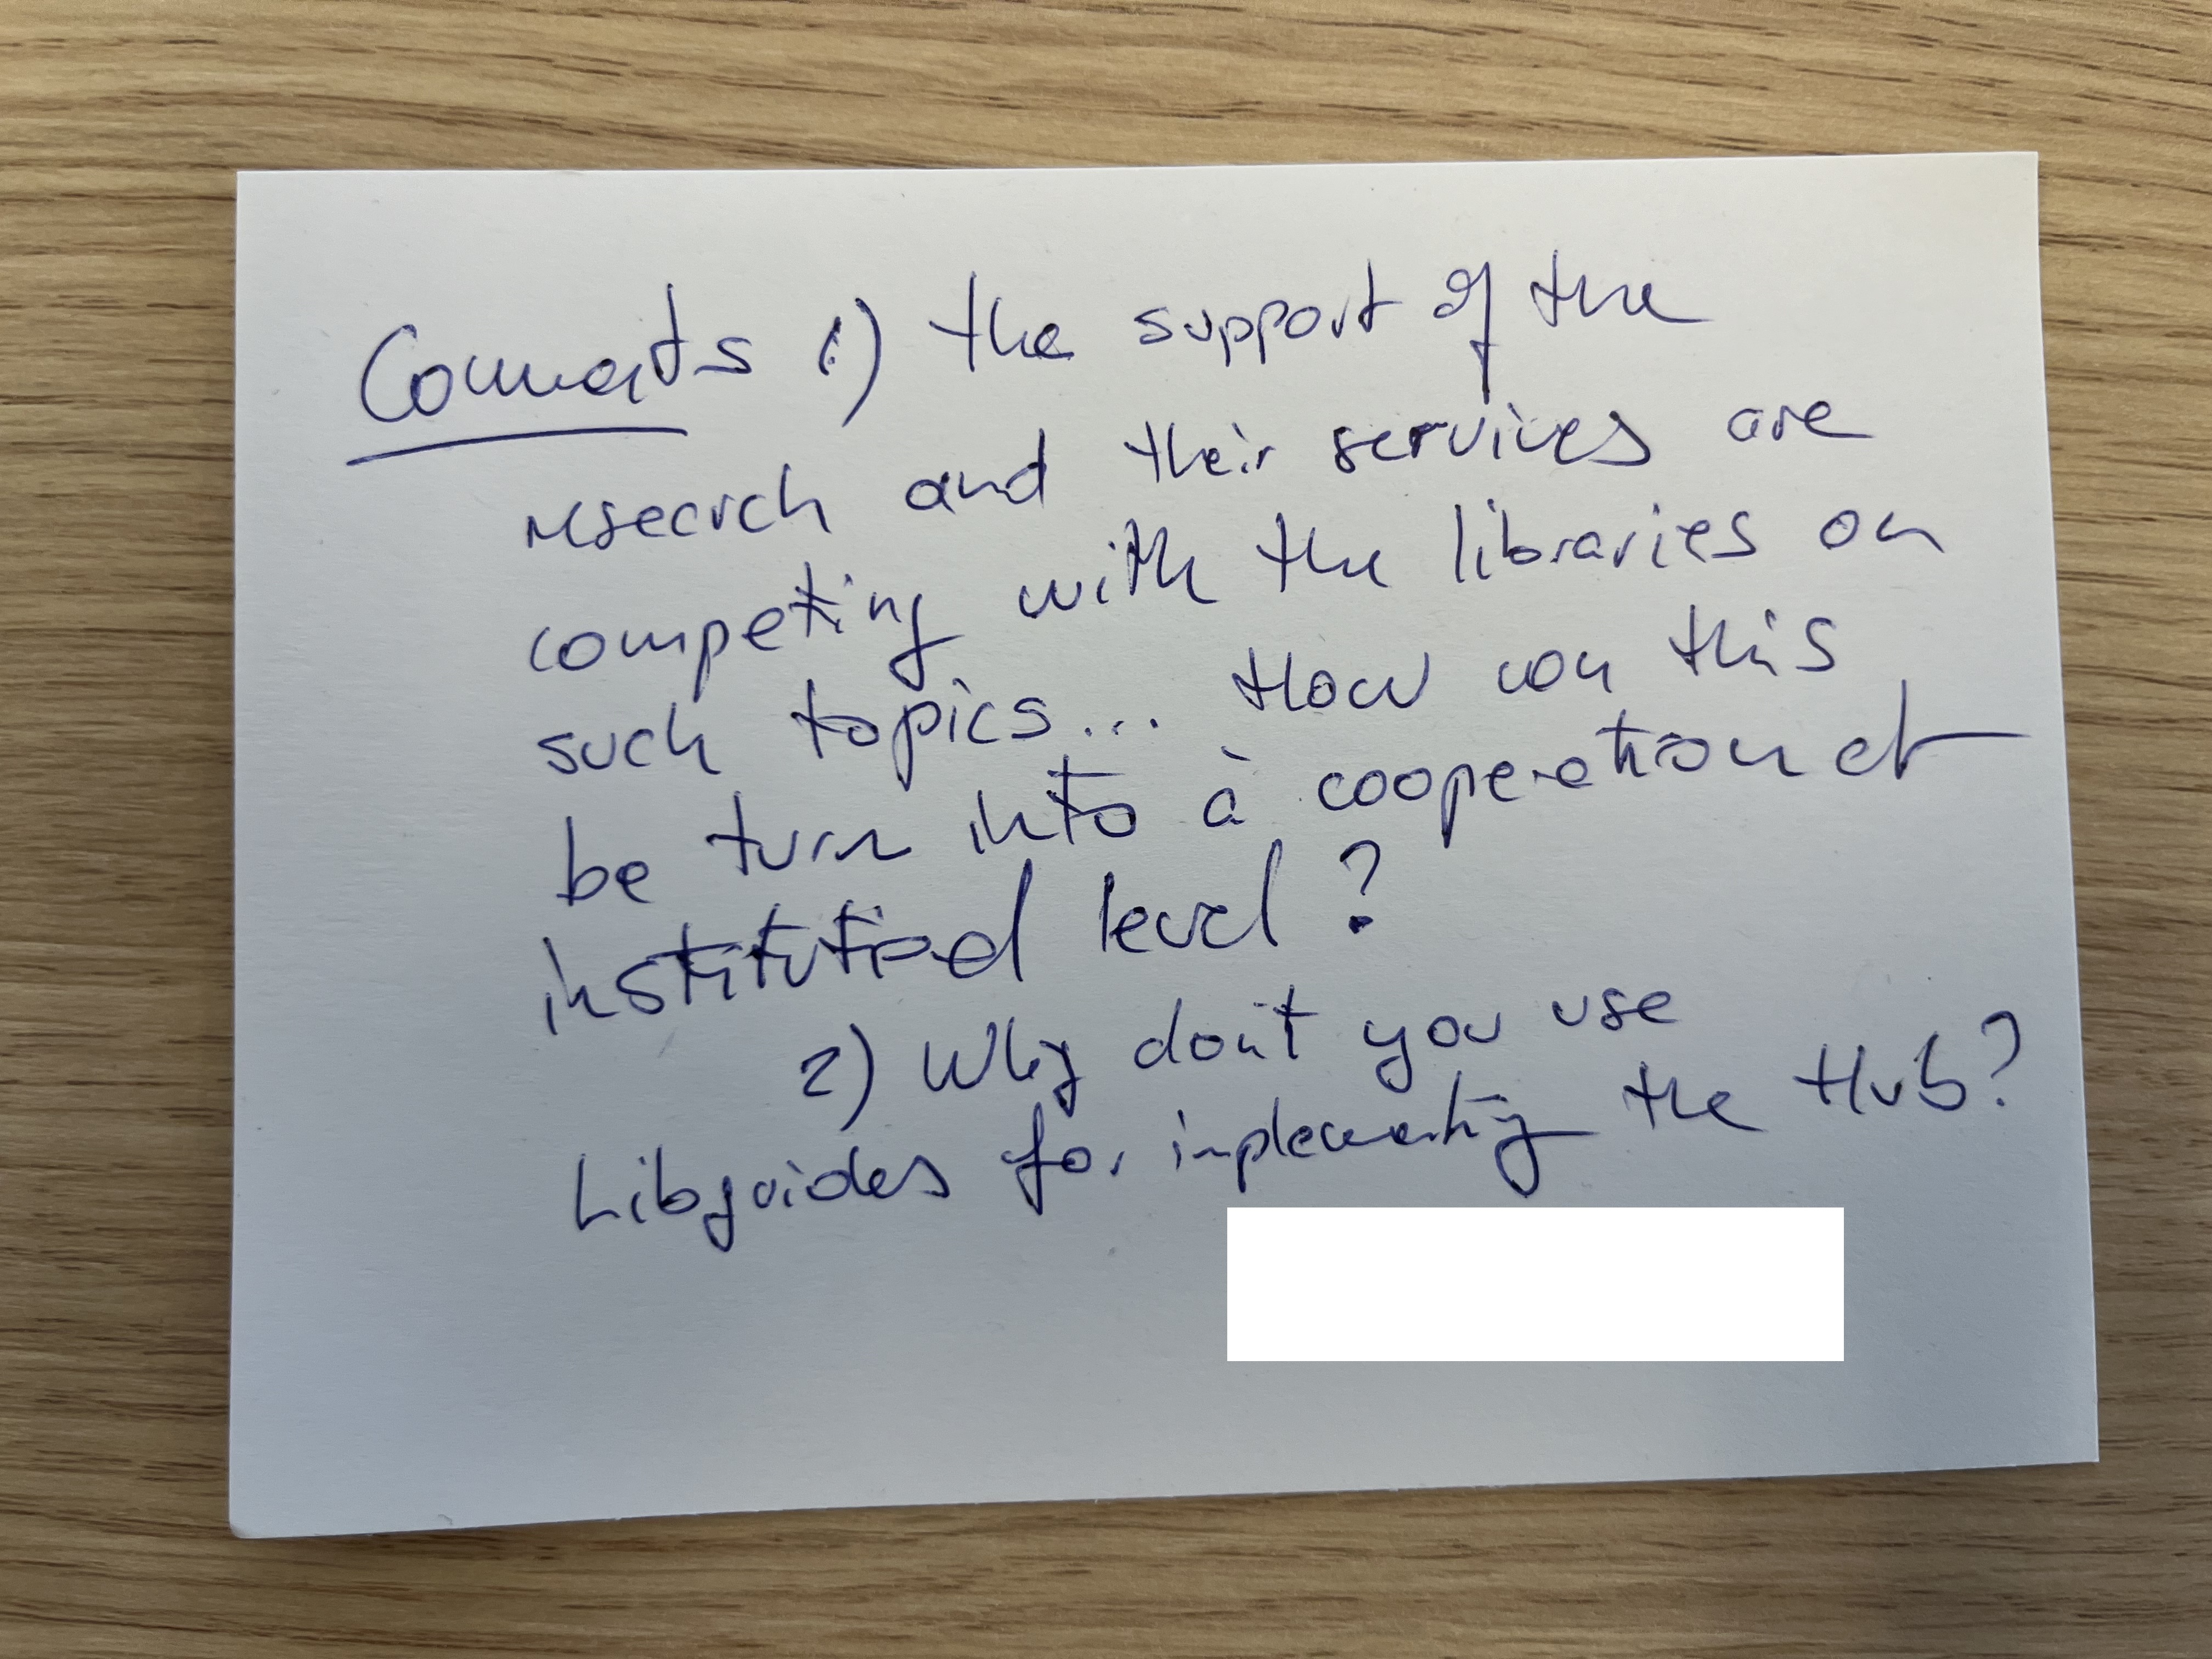 Comments 1) the support of the
research and their services are
competing with the libraries on
such topics... How can this
be turn into a cooperation at
institutional level?
2) Why don't you use
Libguides for implementing the Hub?